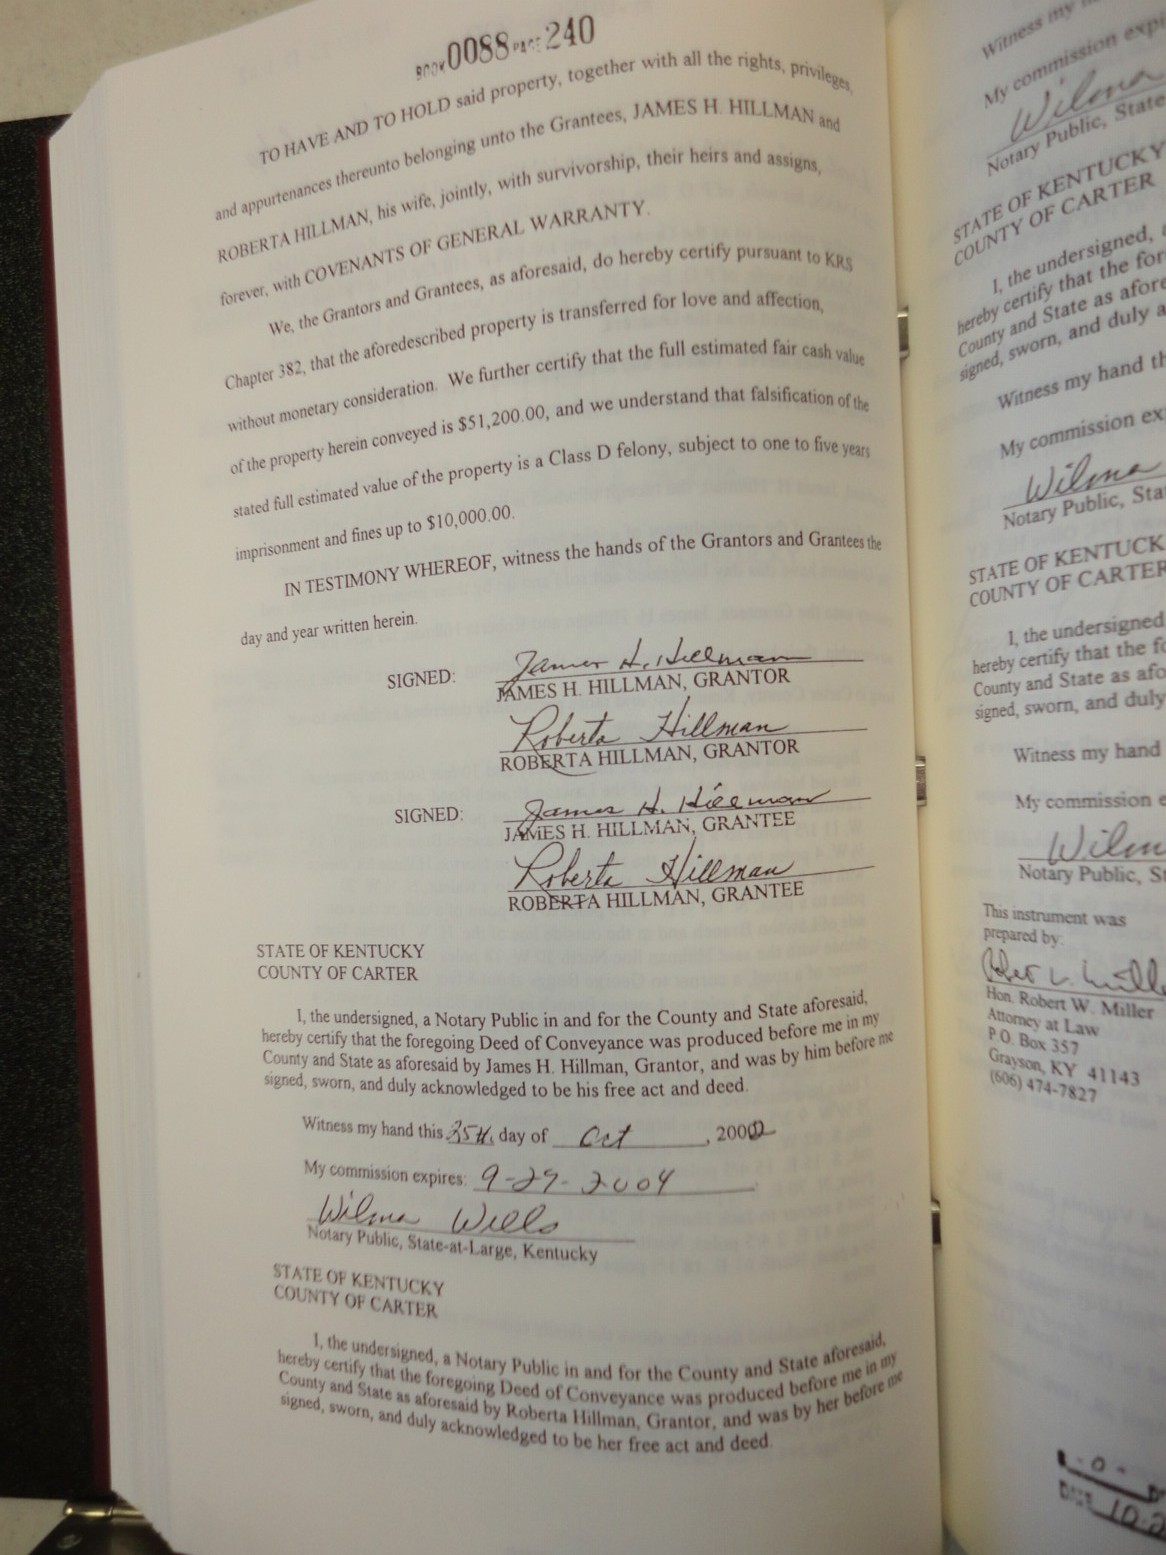 BOOK 0088 PAGE 240
TO HAVE AND TO HOLD said property, together with all the rights, privileges,
and appurtenances thereunto belonging unto the Grantees, JAMES H. HILLMAN and
ROBERTA HILLMAN, his wife, jointly, with survivorship, their heirs and assigns,
forever, with COVENANTS OF GENERAL WARRANTY.
We, the Grantors and Grantees, as aforesaid, do hereby certify pursuant to KRS
Chapter 382, that the aforedescribed property is transferred for love and affection,
without monetary consideration. We further certify that the full estimated fair cash value
of the property herein conveyed is $51,200.00, and we understand that falsification of the
stated full estimated value of the property is a Class D felony, subject to one to five years
imprisonment and fines up to $10,000.00.
IN TESTIMONY WHEREOF, witness the hands of the Grantors and Grantees the
day and year written herein.
SIGNED: James H. Hillman
JAMES H. HILLMAN, GRANTOR
Roberta Hillman
ROBERTA HILLMAN, GRANTOR
SIGNED: James H. Hillman
JAMES H. HILLMAN, GRANTEE
Roberta Hillman
ROBERTA HILLMAN, GRANTEE
STATE OF KENTUCKY
COUNTY OF CARTER
I, the undersigned, a Notary Public in and for the County and State aforesaid,
hereby certify that the foregoing Deed of Conveyance was produced before me in my
County and State as aforesaid by James H. Hillman, Grantor, and was by him before me
signed, sworn, and duly acknowledged to be his free act and deed.
Witness my hand this 25th day of Oct, 2002
My commission expires: 9-29-2004
Wilma Wells
Notary Public, State-at-Large, Kentucky
STATE OF KENTUCKY
COUNTY OF CARTER
I, the undersigned, a Notary Public in and for the County and State aforesaid,
hereby certify that the foregoing Deed of Conveyance was produced before me in my
County and State as aforesaid by Roberta Hillman, Grantor, and was by her before me
signed, sworn, and duly acknowledged to be her free act and deed.
Witness my
My commission
Wilma
Notary Public, State
STATE OF KENTUCKY
COUNTY OF CARTER
I, the undersigned,
hereby certify that the
County and State as
signed, sworn, and duly
Witness my hand
My commission
Wilma
Notary Public,
STATE OF
COUNTY OF CARTER
I, the undersigned
hereby certify that the
County and State as
signed, sworn, and duly
Witness my hand
My commission
Notary Public,
This instrument was
prepared by:
Hon. Robert W. Miller
Attorney at Law
P.O. Box 357
Grayson, KY 41143
(606) 474-7827